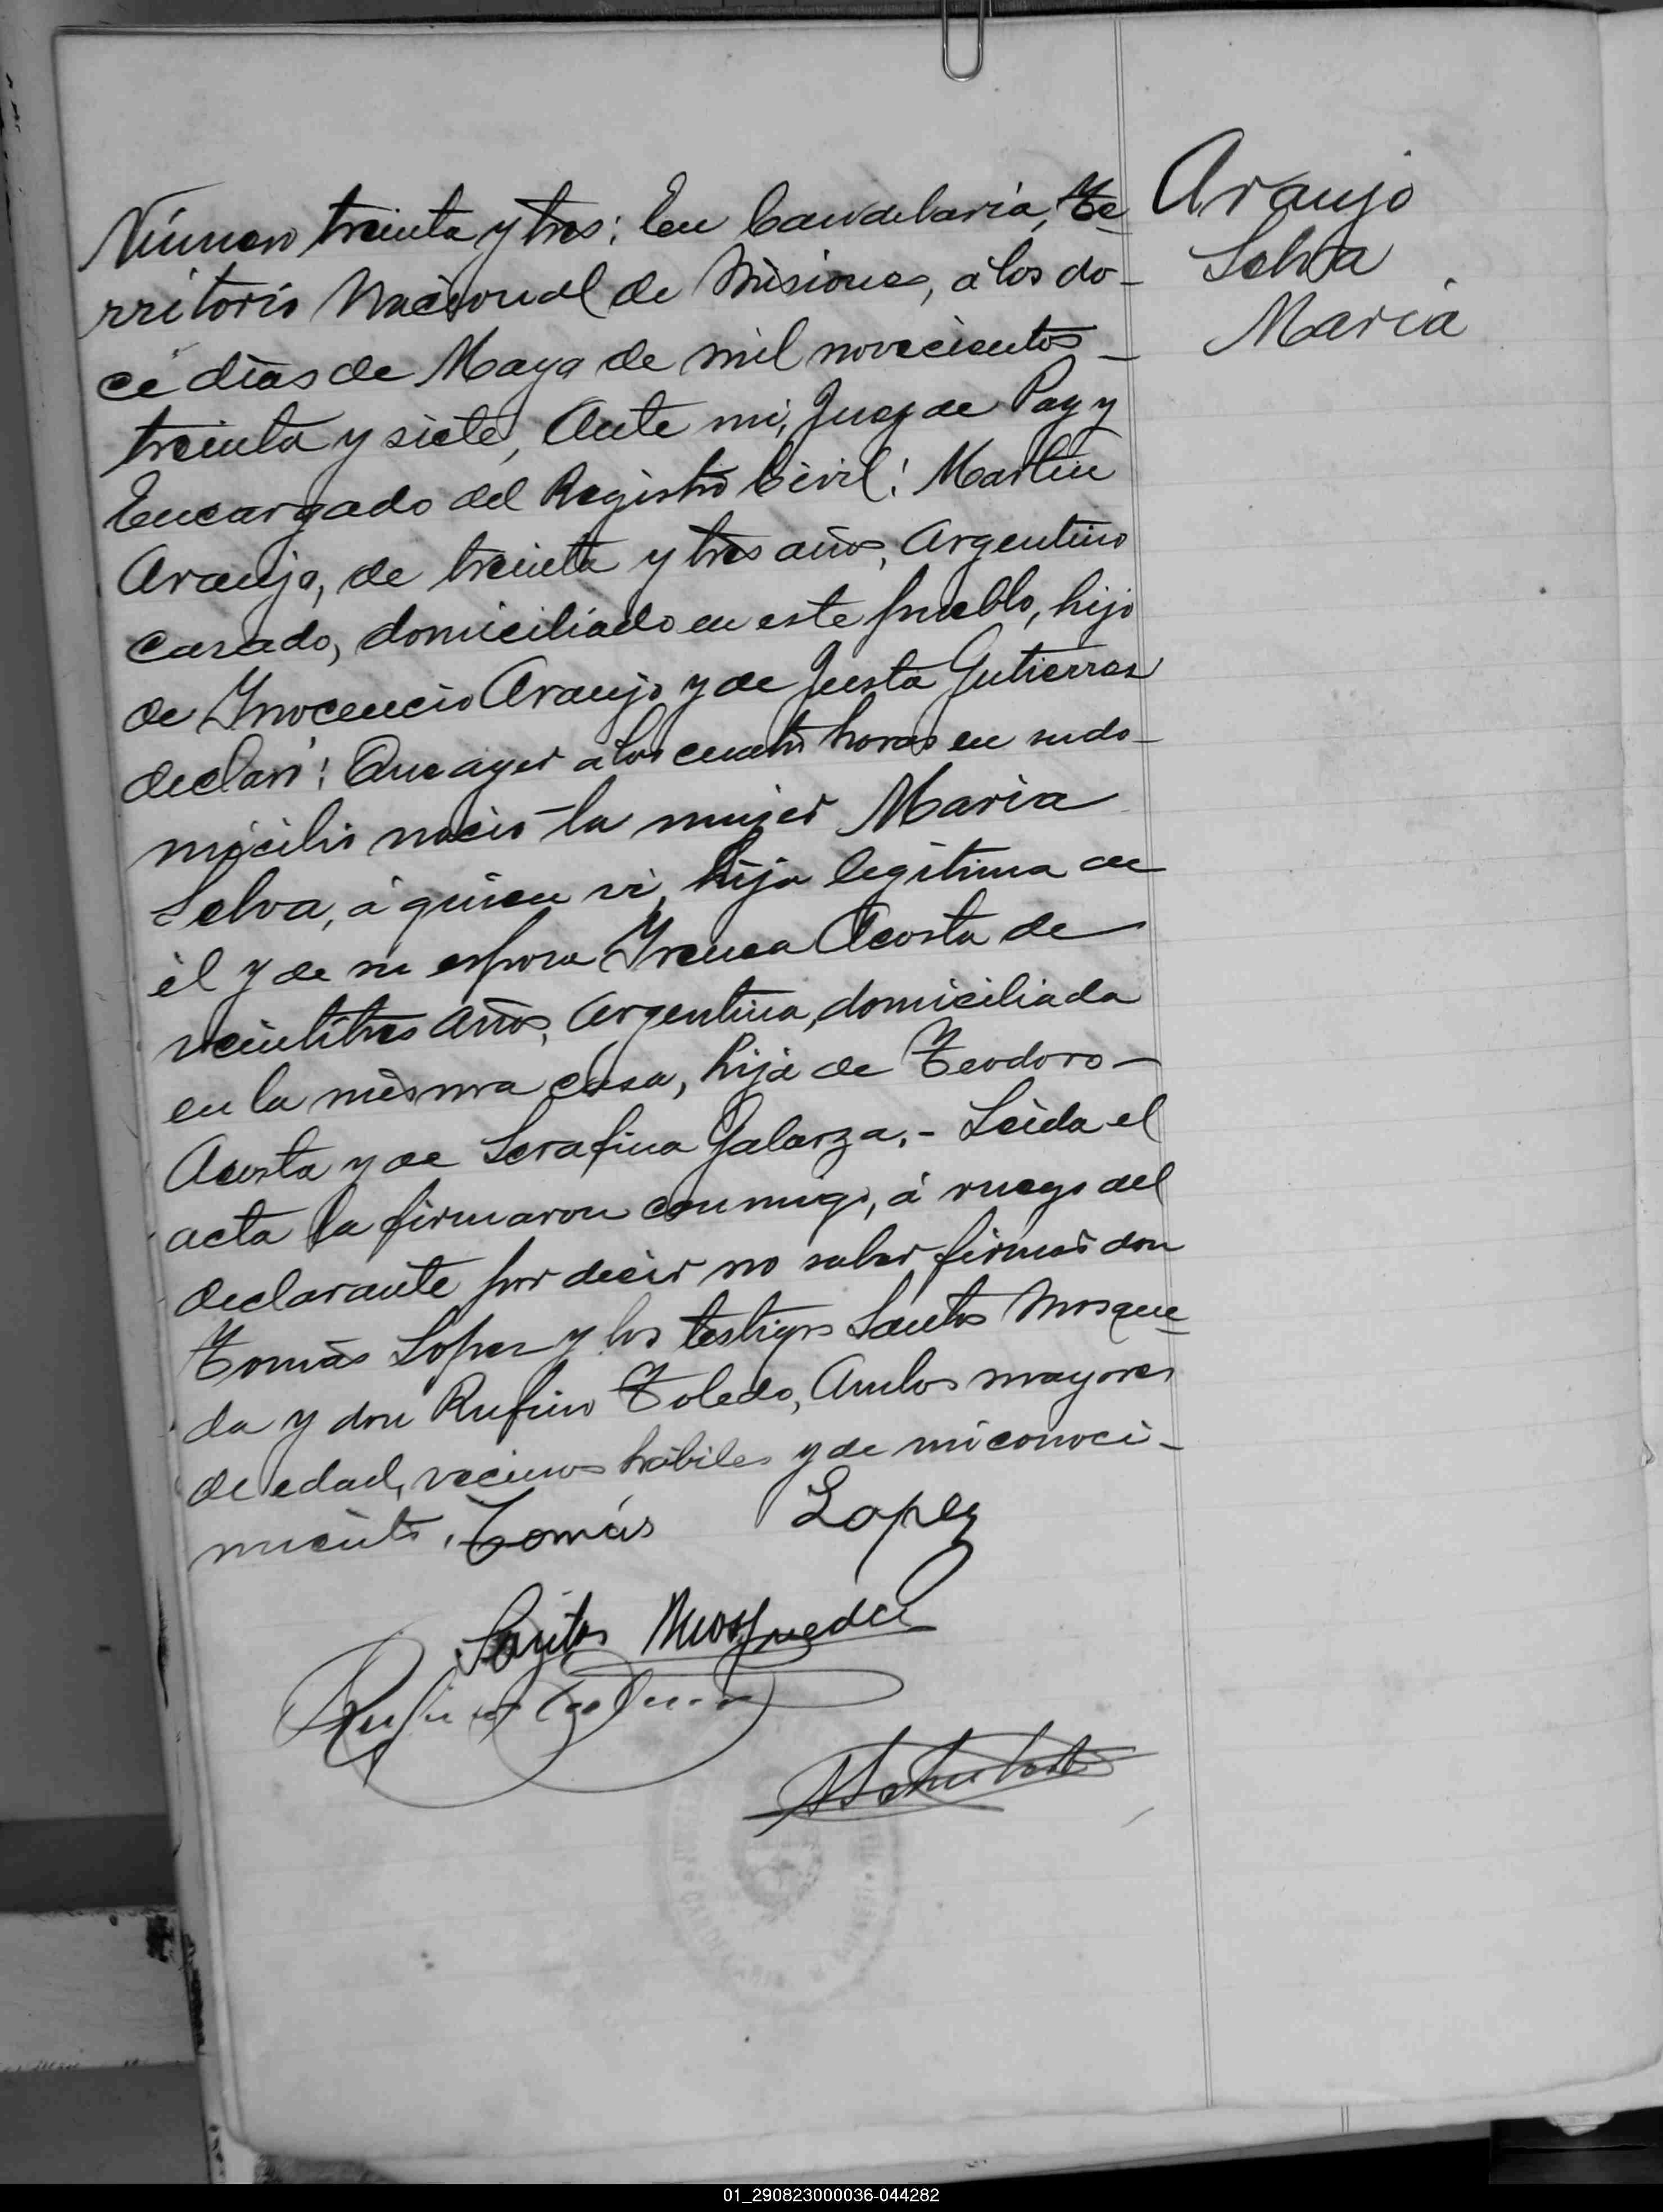 Número treinta y tres: En Candelaria, Te
Araujo
Selva
Maria
rritorio Nacional de Misiones, á los do-
ce dias de Mayo de mil novecientos
treinta y siete, Ante mi, Juez de Paz y
Encargado del Registro Civil: Martin
Araujo, de treinta y tres años, Argentino
casado, domiciliado en este pueblo, hijo
de Ynocencio Araujo y de Justa Gutierrez
declaró: Que ayer a las cuatro horas en su do-
micilio nació la mujer Maria
Selva, á quien vi, hija legitima de
él y de su esposa Yrenea Acosta de
veintitres años, Argentina, domiciliada
en la misma casa, hija de Teodoro
Acosta y de Serafina Galarza.- Leida el
acta la firmaron conmigo, á ruego del
declarante por decir no saber firmar don
Tomás Lopez y los testigos Santos Mosque
da y don Rufino Toledo, Ambos mayores
de edad, vecinos hábiles y de mi conoci-
miento. Tomás Lopez
Santos Mosqueda
Rufino
01_290823000036-044282